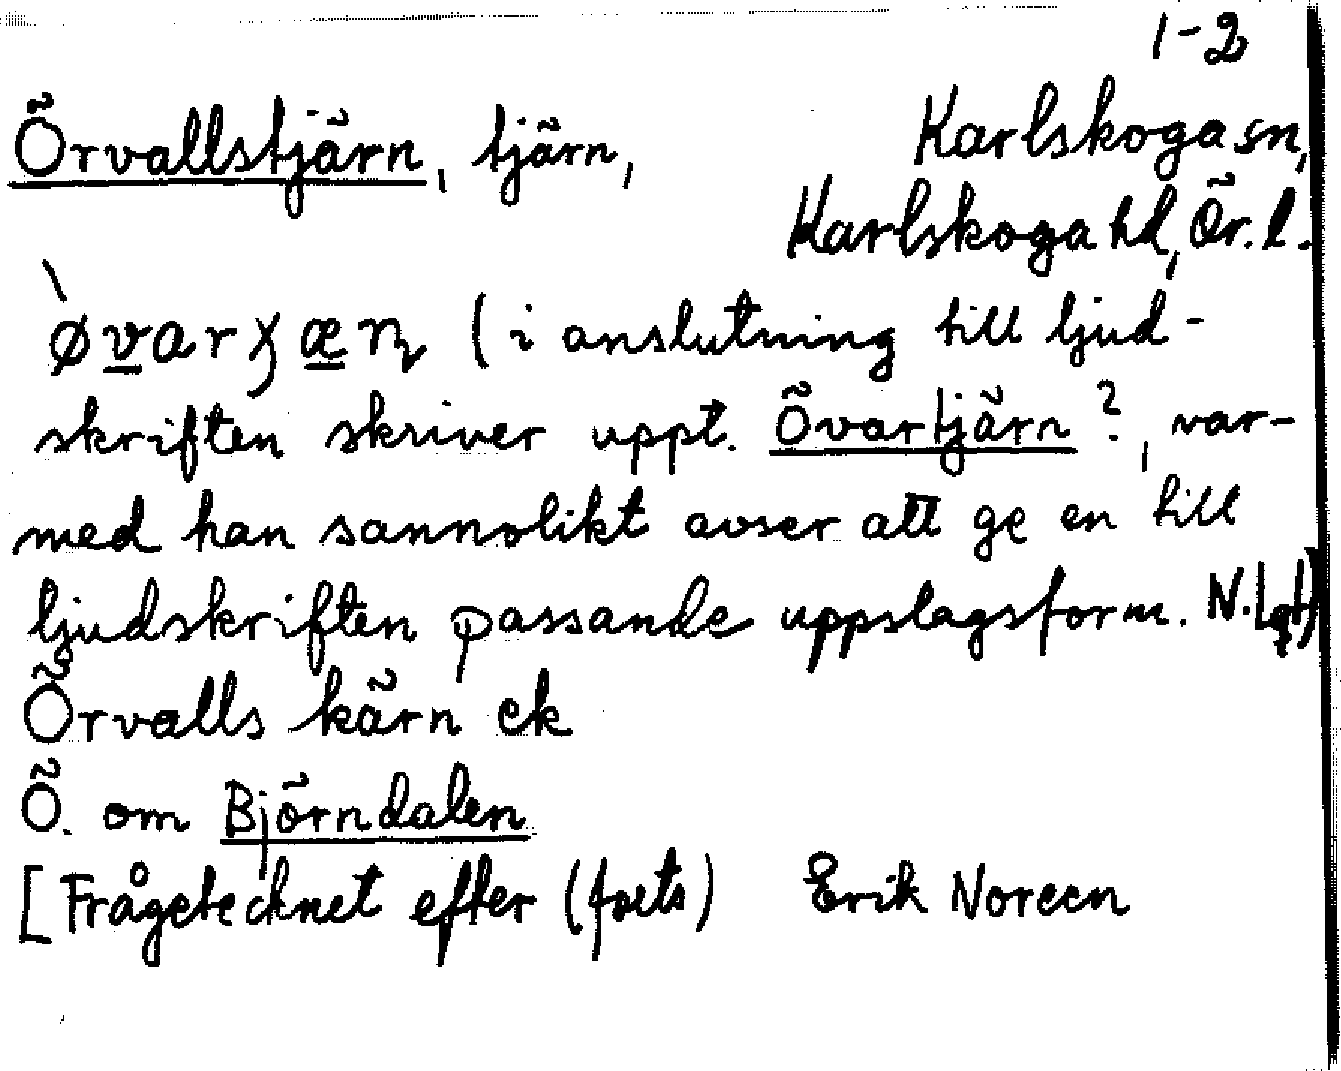 1-2
Örvallstjärn, tjärn, Karlskoga sn,
Karlskoga hd, Ör. l.
(i anslutning till ljud-
skriften skriver uppt. Övartjärn?, var-
med han sannolikt avser att ge en till
ljudskriften passande uppslagsform. N. Lqt)
Örvalls kärn ek
Ö. om Björndalen
[Frågetecknet efter (forts) Erik Noreen